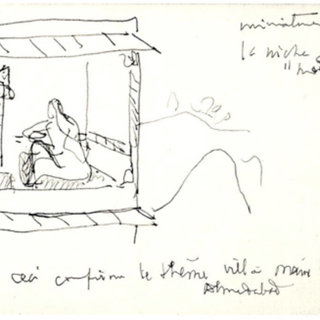 miniature
la niche
ceci confirme le thème villa
Ahmedabad